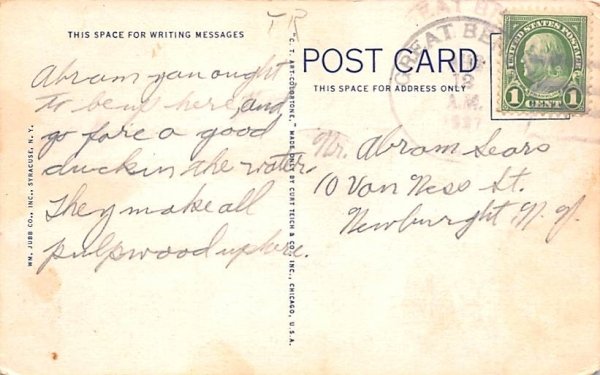 THIS SPACE FOR WRITING MESSAGES
TR
Abram you ought
to be up here, and
go fore a good
duck in the water.
They make all
pulpwood up here.
WM. JUBB CO., INC., SYRACUSE, N. Y.
"C. T. ART-COLORTONE," MADE ONLY BY CURT TEICH & CO., INC., CHICAGO, U.S.A.
POST CARD
THIS SPACE FOR ADDRESS ONLY
GREAT BE
12
A.M.
1937
UNITED STATES POSTAGE
1 CENT 1
Mr. Abram Sears
10 Van Ness St.
Newburght, N. Y.